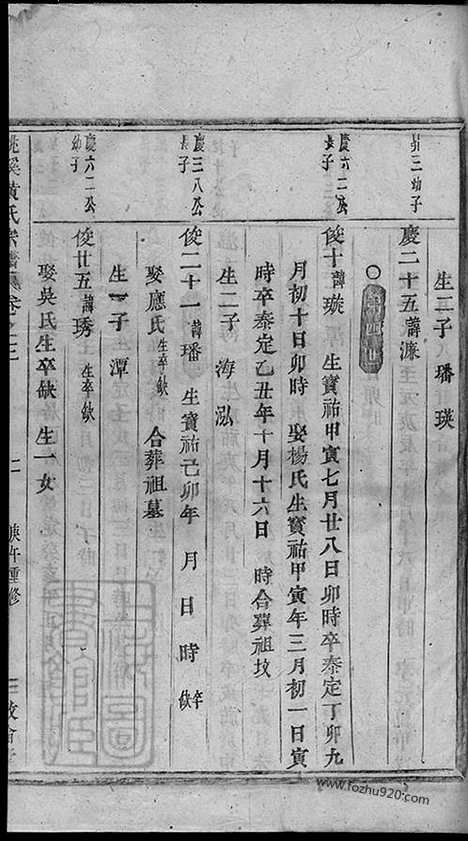 生二子 璠 瑛
昇三幼子
慶二十五諱濂
第四世
慶六二公長子
俊十諱璇 生寶祐甲寅七月廿八日卯時卒泰定丁卯九
月初十日卯時 娶楊氏生寶祐甲寅年三月初一日寅
時卒泰定乙丑年十月十六日 時合葬祖坟
生二子 海 泓
慶三八公長子
俊二十一諱璠 生寶祐己卯年 月 日 時 卒缺
娶應氏生卒缺 合葬祖墓
生一子 潭
慶六二公幼子
俊廿五諱琇 生卒缺
娶吳氏生卒缺 生一女
黃氏宗譜 卷之三 二 庚午重修
www.fozhu920.com